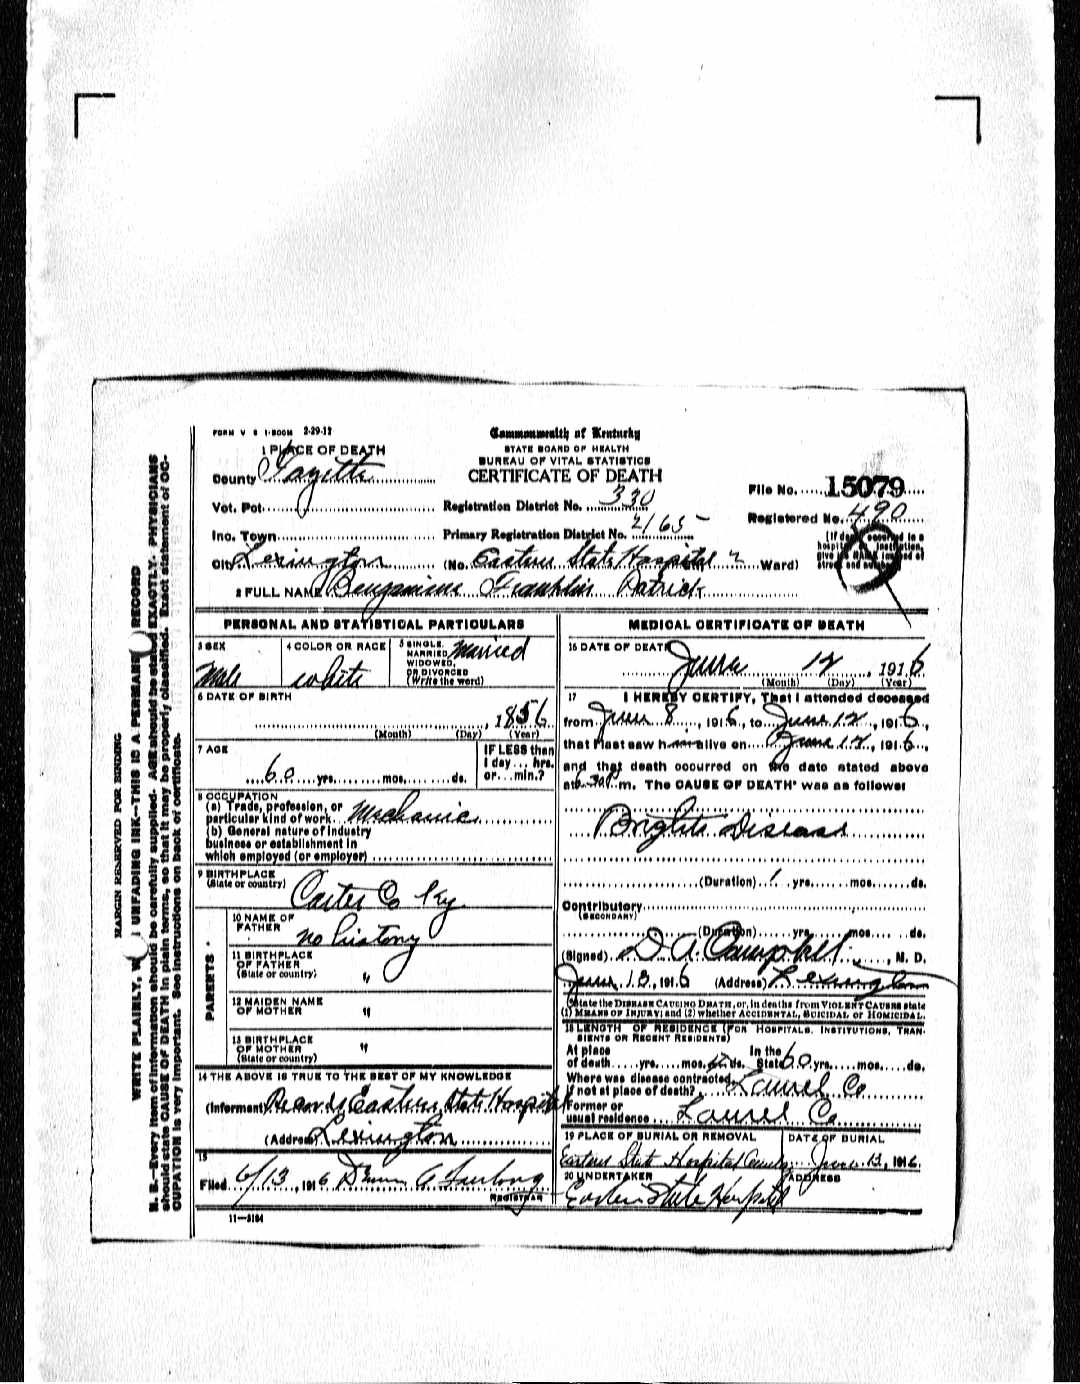 FORM V S 1-500M 2-29-12
Commonwealth of Kentucky
STATE BOARD OF HEALTH
BUREAU OF VITAL STATISTICS
CERTIFICATE OF DEATH
1 PLACE OF DEATH
County Fayette
Vot. Pct.
Inc. Town
City Lexington
Registration District No. 330
Primary Registration District No. 2165
(No. Eastern State Hospital 2 Ward)
File No. 15079
Registered No. 490
[If death occurred in a
hospital institution,
give its NAME instead of
street and number]
2 FULL NAME Benjamine Franklin Patrick
PERSONAL AND STATISTICAL PARTICULARS
3 SEX
Male
4 COLOR OR RACE
White
5 SINGLE,
MARRIED,
WIDOWED,
OR DIVORCED
(Write the word)
Married
6 DATE OF BIRTH
, 1856
(Month) (Day) (Year)
7 AGE
60 yrs. mos. ds.
IF LESS than
1 day ... hrs.
or ... min.?
8 OCCUPATION
(a) Trade, profession, or
particular kind of work Mechanic
(b) General nature of industry
business or establishment in
which employed (or employer)
9 BIRTHPLACE
(State or country) Carter Co Ky.
PARENTS
10 NAME OF
FATHER no history
11 BIRTHPLACE
OF FATHER
(State or country) "
12 MAIDEN NAME
OF MOTHER "
13 BIRTHPLACE
OF MOTHER
(State or country) "
14 THE ABOVE IS TRUE TO THE BEST OF MY KNOWLEDGE
(Informant) Records Eastern State Hospital
(Address) Lexington
15
Filed 6/13, 1916
REGISTRAR
11—3184
MEDICAL CERTIFICATE OF DEATH
16 DATE OF DEATH
June 12, 1916
(Month) (Day) (Year)
17 I HEREBY CERTIFY, That I attended deceased
from June 8, 1916, to June 12, 1916,
that I last saw him alive on June 12, 1916,
and that death occurred on the date stated above
at 6.30 P m. The CAUSE OF DEATH* was as follows:
Brights Disease
(Duration) 1 yrs. mos. ds.
Contributory
(SECONDARY)
(Duration) yrs. mos. ds.
(Signed) D. A. Campbell, M. D.
June 13, 1916 (Address) Lexington
*State the DISEASE CAUSING DEATH, or, in deaths from VIOLENT CAUSES state
(1) MEANS OF INJURY; and (2) whether ACCIDENTAL, SUICIDAL or HOMICIDAL.
18 LENGTH OF RESIDENCE (FOR HOSPITALS, INSTITUTIONS, TRAN-
SIENTS OR RECENT RESIDENTS)
At place In the
of death yrs. mos. ds. State 60 yrs. mos. ds.
Where was disease contracted
if not at place of death? Laurel Co
Former or
usual residence Laurel Co
19 PLACE OF BURIAL OR REMOVAL
Eastern State Hospital
DATE OF BURIAL
June 13, 1916
20 UNDERTAKER
Eastern State Hospital
ADDRESS
MARGIN RESERVED FOR BINDING
WRITE PLAINLY, UNFADING INK—THIS IS A PERMANENT RECORD
N. B.—Every item of information should be carefully supplied. AGE should be stated EXACTLY. PHYSICIANS
should state CAUSE OF DEATH in plain terms, so that it may be properly classified. Exact statement of OC-
CUPATION is very important. See instructions on back of certificate.